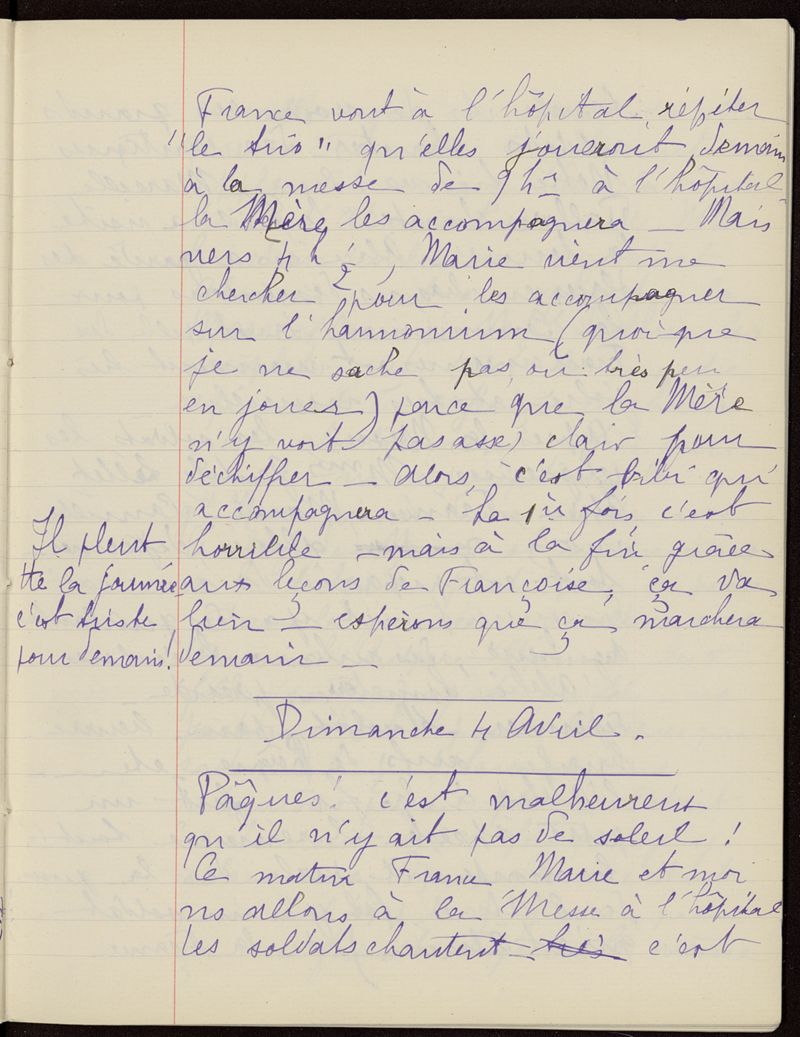 France vont à l'hôpital, répéter
"le trio" qu'elles joueront demain
à la messe de 9 hres à l'hôpital
la Mère les accompagnera — Mais
vers 4 h ½, Marie vient me
chercher pour les accompagner
sur l'harmonium (quoique
je ne sache pas, ou très peu
en jouer) parce que la Mère
n'y voit pas assez clair pour
déchiffrer — alors, c'est bibi qui
accompagnera — La 1ère fois, c'est
horrible — mais à la fin grâce
aux leçons de Françoise, ça va
bien — espérons que ça marchera
demain —
Il pleut
tte la journée
c'est triste
pour demain!
Dimanche 4 Avril.
Pâques! c'est malheureux
qu'il n'y ait pas de soleil!
Ce matin France Marie et moi
ns allons à la Messe à l'hôpital
les soldats chantent très c'est